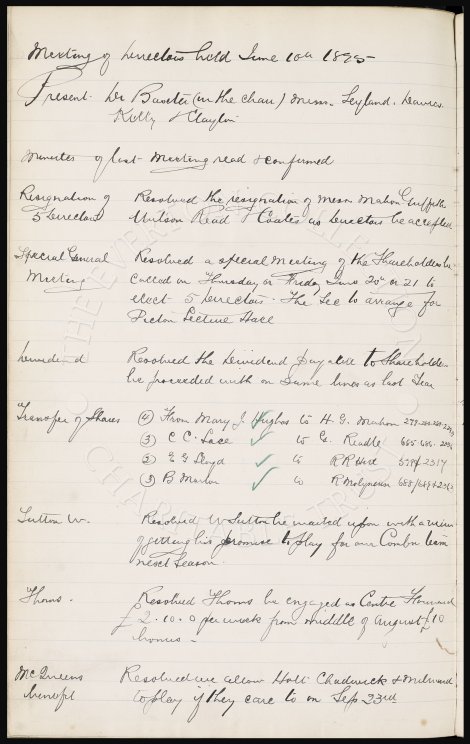 Meeting of Directors held June 10th 1895
Present Dr Baxter (in the chair) Messrs. Leyland. Davies.
Kelly & Clayton
Minutes of last Meeting read & confirmed
Resignation of 5 Directors
Resolved the resignation of Messrs Mahon Griffiths
Wilson Read & Coates as Directors be accepted
Special General Meeting
Resolved a special Meeting of the Shareholders be
called on Thursday or Friday June 20th or 21 to
elect 5 Directors. The Sec to arrange for
Picton Lecture Hall
Dividend
Resolved the Dividend payable to Shareholders
be proceeded with on same lines as last Year
Transfer of Shares
(4) From Mary J Hughes to H. G. Mahon
(3) C C. Lace to G. Readle
Lloyd to R R
(3) B Marton to R Molyneux
Sutton W.
Resolved W Sutton be waited upon with a view
of getting his promise to play for our Combn team
next Season.
Thoms.
Resolved Thoms be engaged as Centre Forward
£2.10.0 per week from middle of August £10
bonus.
McQueens benefit
Resolved we allow Holt Chadwick & Milward
to play if they care to on Sep 23rd
THE EVERTON
CHARITABLE TRUST